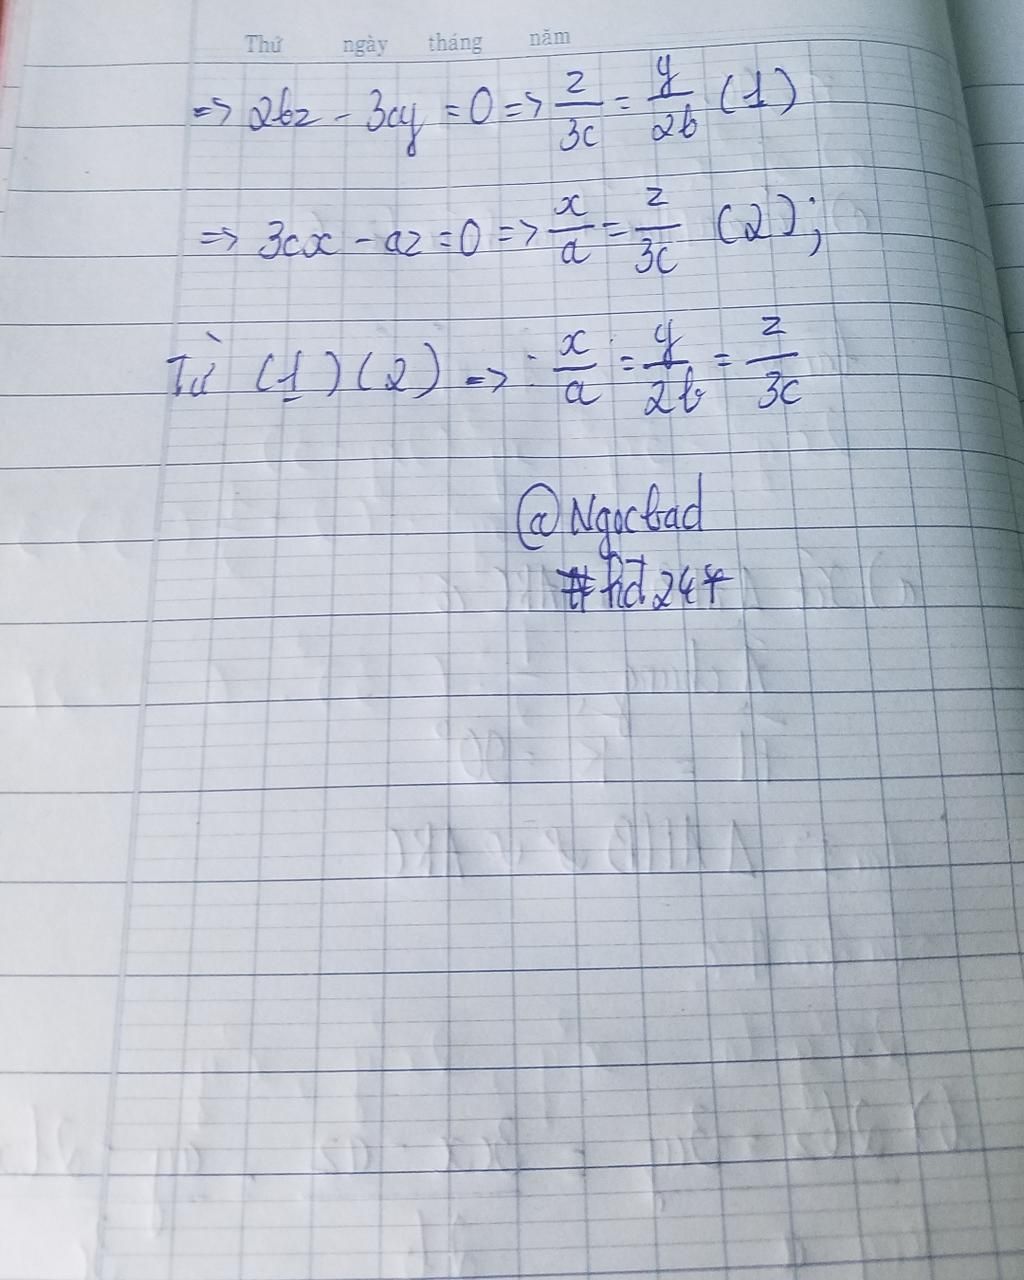 Thứ ngày tháng năm
=> 2bz - 3cy = 0 => z/3c = y/2b (1)
=> 3cx - az = 0 => x/a = z/3c (2);
Từ (1) (2) => x/a = y/2b = z/3c
@Ngocbad
#hd247